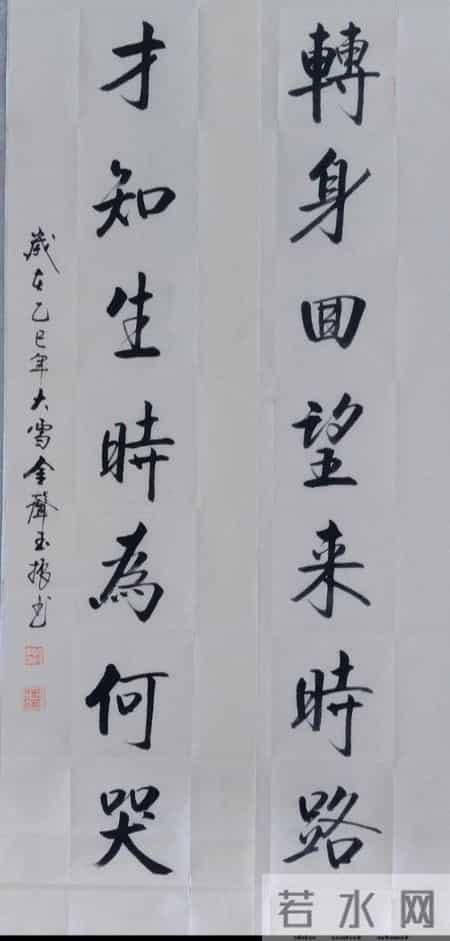 轉身回望来時路
才知生時為何哭
歲在乙巳年大雪金聲玉振书
若水网